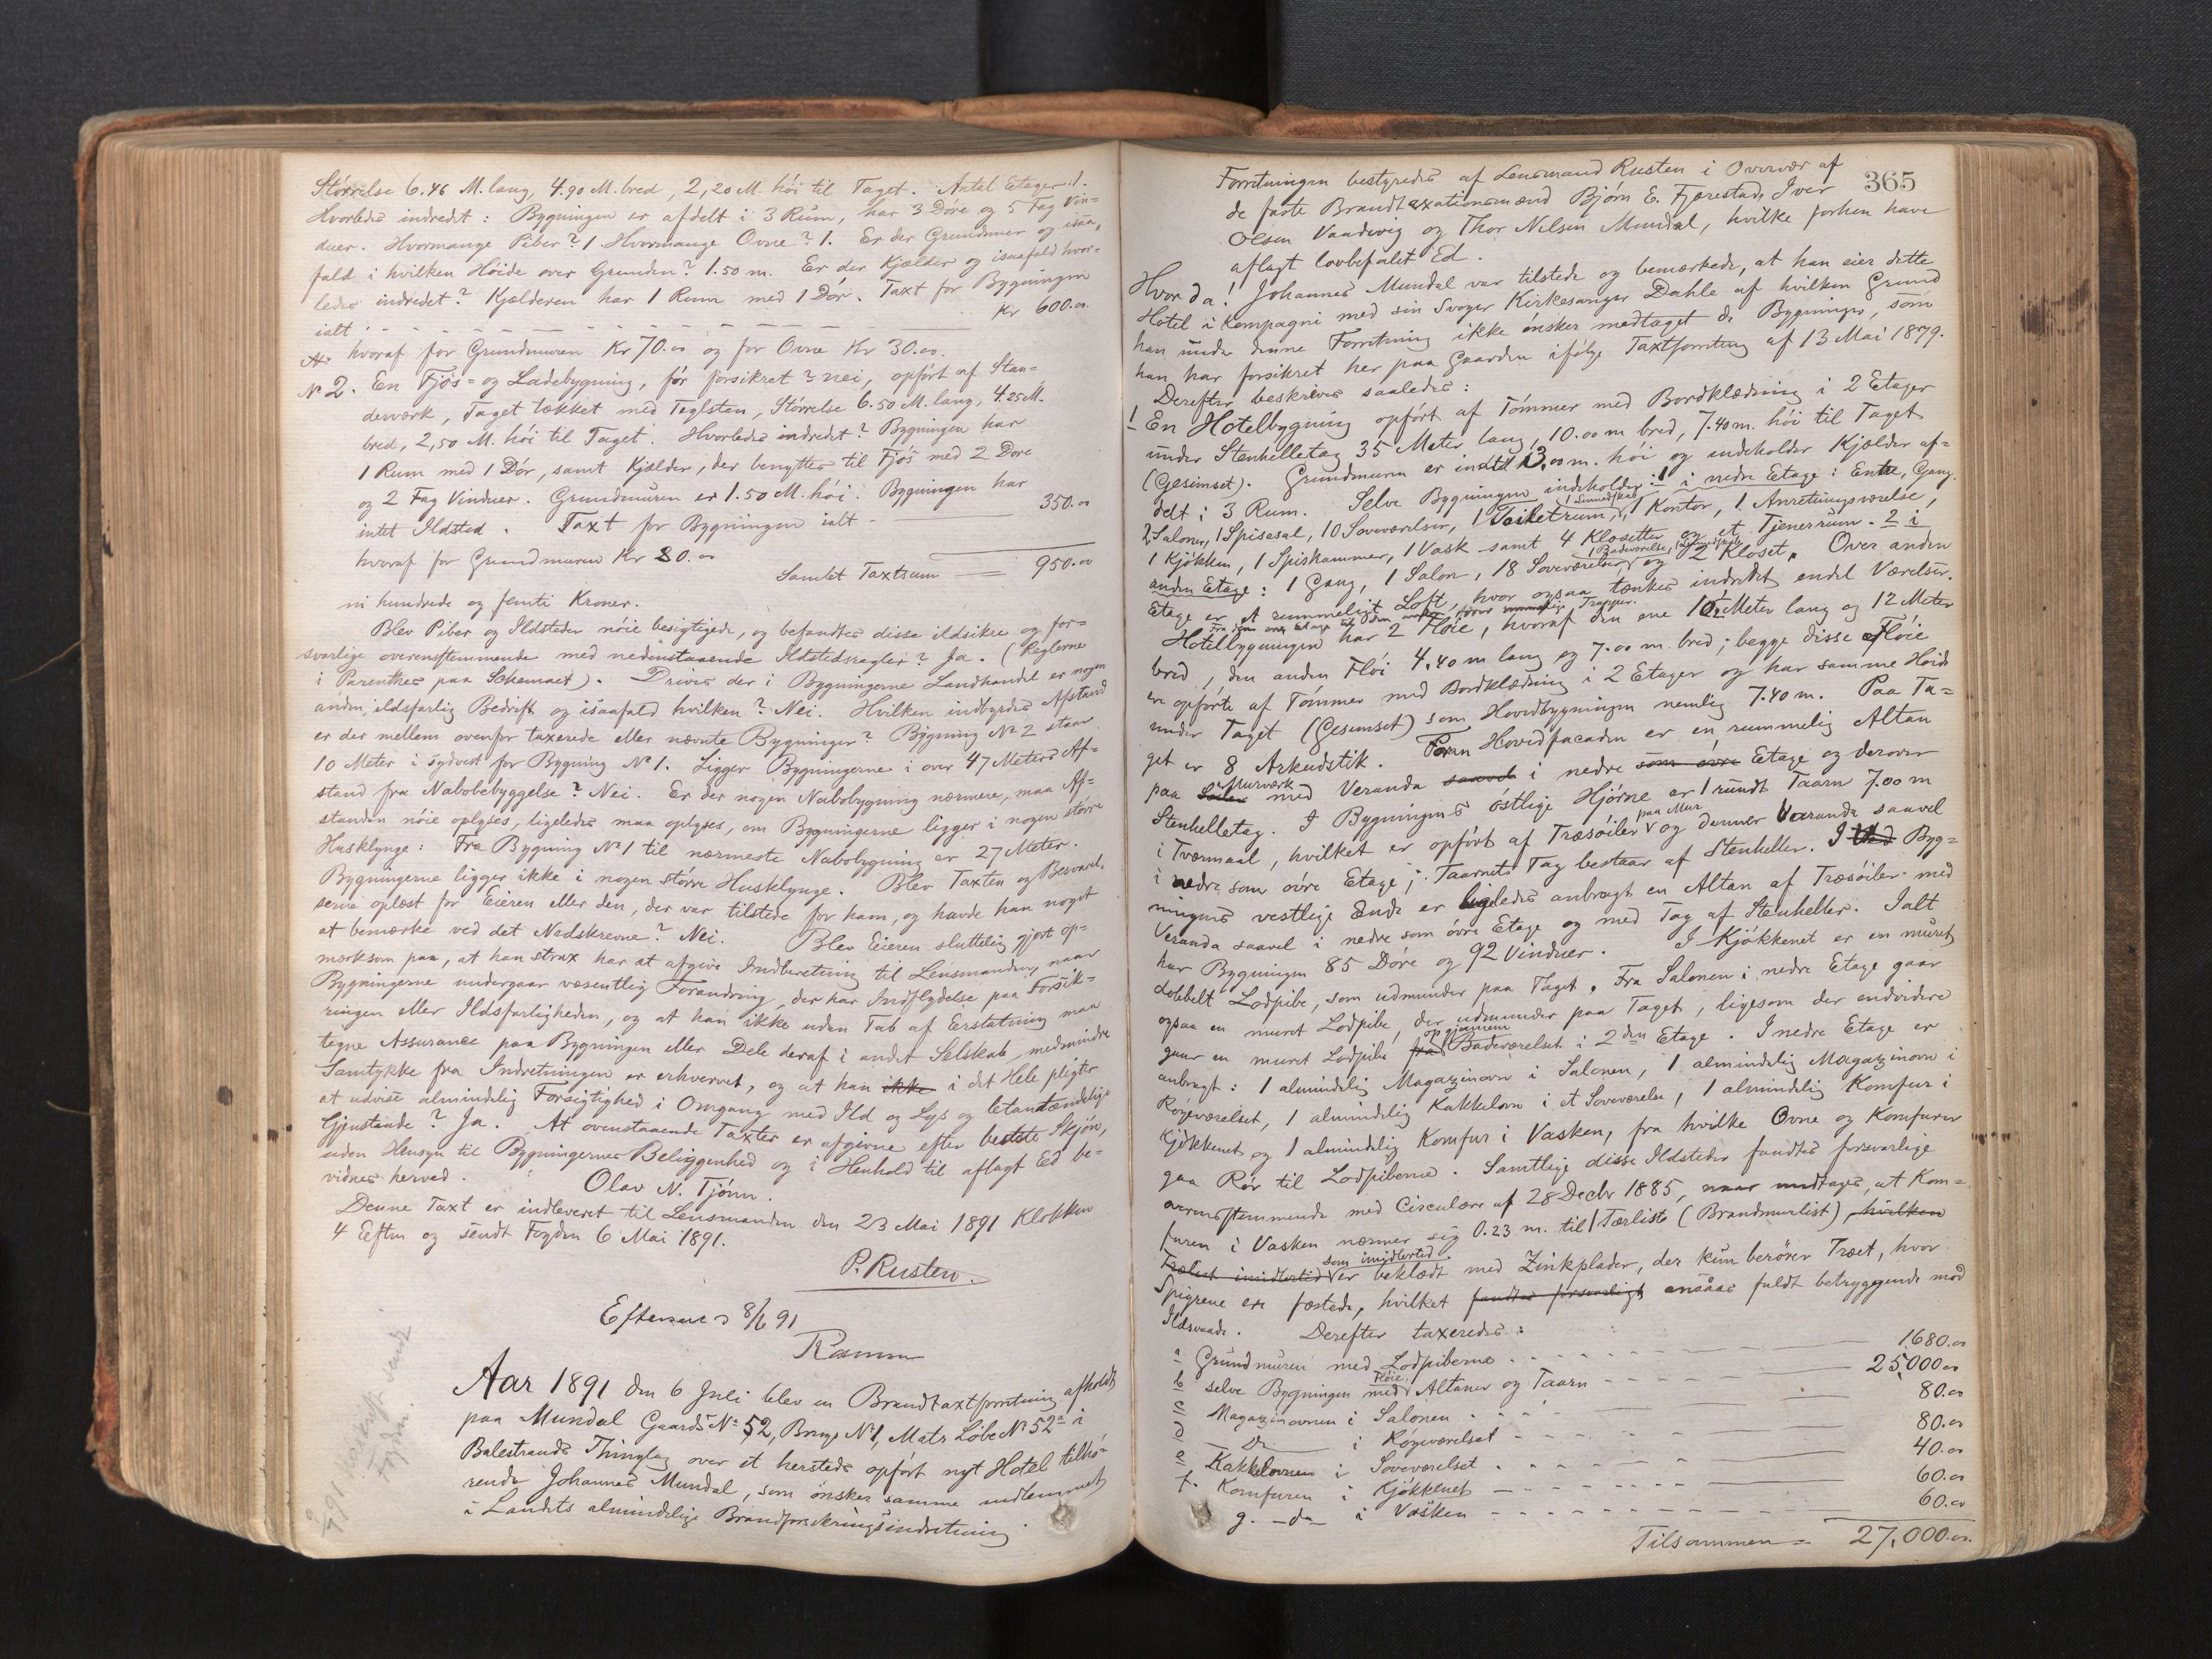 Størrelse 6.46 M. lang, 4.90 M. bred, 2,20 M. høi til Taget. Antal Etager: 1.
Hvorledes indredet: Bygningen er afdelt i 3 Rum, har 3 Døre og 5 Fag Vin=
duer. Hvormange Piber? 1 Hvormange Ovne? 1. Er der Grundmur og isaa=
fald i hvilken Høide over Grunden? 1.50 m. Er der Kjælder og isaafald hvor=
ledes indredet? Kjælderen har 1 Rum med 1 Dør. Taxt for Bygningen
ialt Kr 600.00
hvoraf for Grundmuren Kr 70.00 og for Ovne Kr 30.00.
No 2. En Fjøs= og Ladebygning, før forsikret? nei, opført af Stan=
derværk, Taget tækket med Teglsten, Størrelse 6.50 M. lang, 4.25 M.
bred, 2,50 M. høi til Taget. Hvorledes indredet? Bygningen har
1 Rum med 1 Dør, samt Kjælder, der benyttes til Fjøs med 2 Døre
og 2 Fag Vinduer. Grundmuren er 1.50 M. høi. Bygningen har
intet Ildsted. Taxt for Bygningen ialt - 350.00
hvoraf for Grundmuren Kr 80.00
Samlet Taxtsum = 950.00
ni hundrede og femti Kroner.
Blev Piber og Ildsteder nøie besigtigede, og befandtes disse ildsikre og for=
svarlige overensstemmende med nedenstaaende Ildstedsregler? Ja. (Reglerne
i Parenthes paa Schemaet). Drives der i Bygningerne Landhandel er nogen
anden ildsfarlig Bedrift og isaafald hvilken? Nei. Hvilken indbyrdes Afstand
er der mellem ovenfor taxerede eller nævnte Bygninger? Bygning No 2 staar
10 Meter i sydvest for Bygning No 1. Ligger Bygningerne i over 47 Meters Af=
stand fra Nabobebyggelse? Nei. Er der nogen Nabobygning nærmere, maa Af=
standen nøie oplyses, ligeledes maa oplyses, om Bygningerne ligger i nogen større
Husklynge: Fra Bygning No 1 til nærmeste Nabobygning er 27 Meter.
Bygningerne ligger ikke i nogen større Husklynge. Blev Taxten og Besvarel=
serne oplæst for Eieren eller den, der var tilstede for ham, og havde han noget
at bemærke ved det Nedskrevne? Nei. Blev Eieren sluttelig gjort op=
mærksom paa, at han strax har at afgive Indberetning til Lensmanden, naar
Bygningerne undergaar væsentlig Forandring, der har Indflydelse paa Forsik=
ringen eller Ildsfarligheden, og at han ikke uden Tab af Erstatning maa
tegne Assurance paa Bygningen eller Dele deraf i andet Selskab, medmindre
Samtykke fra Indretningen er erhvervet, og at han ikke i det Hele pligter
at udvise almindelig Forsigtighed i Omgang med Ild og Lys og letantændelige
Gjenstande? Ja. At ovenstaaende Taxter er afgivne efter bedste Skjøn,
uden Hensyn til Bygningernes Beliggenhed og i Henhold til aflagt Ed be=
vidnes herved.
Olav N. Tjönn.
Denne Taxt er indleveret til Lensmanden den 23 Mai 1891 Klokken
4 Eftm og sendt Fogden 6 Mai 1891.
P. Rusten.
8/6 91
Aar 1891 den 6 Juli blev en Brandtaxtforretning afholdt
paa Mundal Gaards No 52, Brugs No 1, Matr Løbe No 52a i
Balestrands Thinglag over et hersteds opført nyt Hotel tilhø=
rende Johannes Mundal, som ønsker samme indlemmet
i Landets almindelige Brandforsikringsindretning
365
Forretningen bestyredes af Lensmand Rusten i Overvær af
de faste Brandtaxationsmænd Bjørn E. Fjærestad, Iver
Olsen Vaadevig og Thor Nilsen Mundal, hvilke forhen have
aflagt lovbefalet Ed.
Hvor da! Johannes Mundal var tilstede og bemærkede, at han eier dette
Hotel i Kompagni med sin Svoger Kirkesanger Dahle af hvilken Grund
han under denne Forretning ikke ønsker medtaget de Bygninger, som
han har forsikret her paa Gaarden ifølge Taxtforretng af 13 Mai 1879.
Derefter beskrives saaledes:
1 En Hotelbygning opført af Tømmer med Bordklædning i 2 Etager
under Stenhelletag 35 Meter lang, 10.00 m bred, 7.40 m. høi til Taget
(Gesimset). Grundmuren er indtil 3,00 m. høi og indeholder Kjælder af=
delt i 3 Rum. Selve Bygningen indeholder: 1 i nedre Etage: Entre, Gang,
2 Saloner, 1 Spisesal, 10 Soveværelser, 1 Toiletrum, 1 Linnedskab, 1 Kontor, 1 Anretningsværelse,
1 Kjøkken, 1 Spiskammer, 1 Vask samt 4 Klosetter og et Tjenerrum. 2 i
anden Etage: 1 Gang, 1 Salon, 18 Soveværelser, 1 Badeværelse, og 2 Kloset. Over anden
Etage er et rummeligt Loft, hvor ogsaa tænkes indredet endel Værelser.
Hotelbygningen har 2 Fløie, hvoraf den ene 10½ Meter lang og 12 Meter
bred, den anden Fløi 4.40 m lang og 7.00 m. bred; begge disse Fløie
er opførte af Tømmer med Bordklædning i 2 Etager og har samme Høide
under Taget (Gesimset) som Hovedbygningen nemlig 7.40 m. Paa Ta=
get er 8 Arkudstik. Foran Hovedfacaden er en rummelig Altan
paa Murværk med Veranda saavel i nedre som øvre Etage og derover
Stenhelletag. I Bygningens østlige Hjørne er 1 rundt Taarn 7.00 m
i Tværmaal, hvilket er opført af Træsøiler paa Mur og danner Veranda saavel
i nedre som øvre Etage; Taarnets Tag bestaar af Stenheller. I Byg=
ningens vestlige Ende er ligeledes anbragt en Altan af Træsøiler med
Veranda saavel i nedre som øvre Etage og med Tag af Stenheller. Ialt
har Bygningen 85 Døre og 92 Vinduer. I Kjøkkenet er en muret
dobbelt Lodpibe, som udmunder paa Taget. Fra Salonen i nedre Etage gaar
ogsaa en muret Lodpibe, der udmunder paa Taget, ligesom der endvidere
gaar en muret Lodpibe fra op gjennem Badeværelset i 2den Etage. I nedre Etage er
anbragt: 1 almindelig Magazinovn i Salonen, 1 almindelig Magazinovn i
Røgeværelset, 1 almindelig Kakkelovn i et Soveværelse, 1 almindelig Komfur i
Kjøkkenet og 1 almindelig Komfur i Vasken, fra hvilke Ovne og Komfurer
gaa Rør til Lodpiberne. Samtlige disse Ildsteder fandtes forsvarlige
overensstemmende med Circulære af 28 Decbr 1885, naar undtages, at Kom=
furen i Vasken nærmer sig 0.23 m. til 1 Tærliste (Brandmurlist), hvilken
Trælist imidlertid som imidlertid er beklædt med Zinkplader, der kun berører Træet, hvor
Spigrene ere fæstede, hvilket fandtes forsvarligt ansaaes fuldt betryggende mod
Ildsvaade. Derefter taxeredes:
a Grundmuren med Lodpiberne 1680.00
b selve Bygningen med Fløie, Altaner og Taarn 25,000.00
c Magazinovnen i Salonen 80.00
d Do i Røgeværelset 80.00
e Kakkelovnen i Soveværelset 40.00
f. Komfuren i Kjøkkenet 60.00
g. do i Vasken 60.00
Tilsammen = 27,000.00